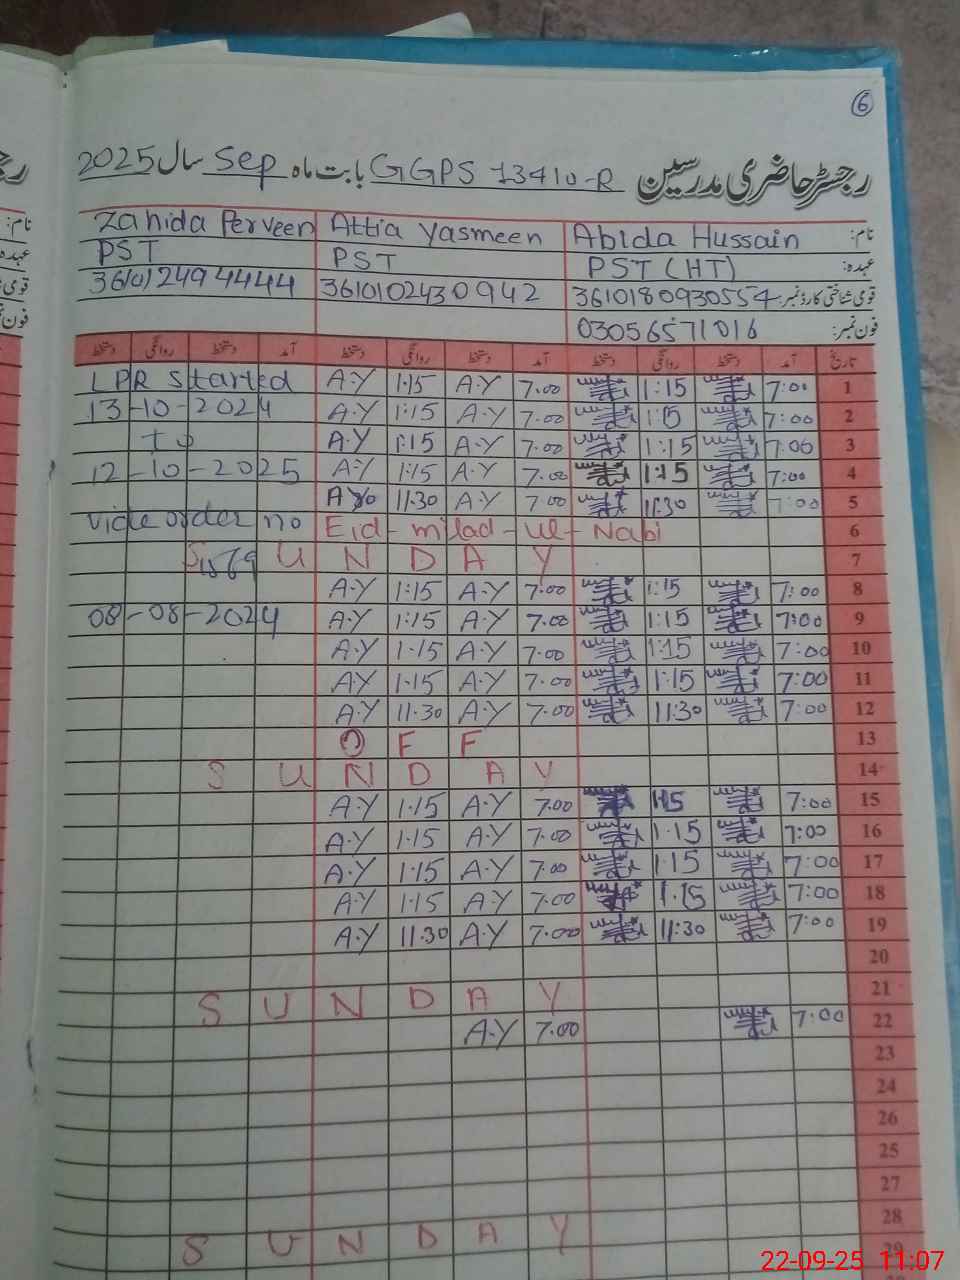 6
رجسٹر حاضری مدرسین GGPS 13410-R بابت ماہ Sep سال 2025
نام: Abida Hussain Attia Yasmeen Zahida Perveen
عہدہ: PST (HT) PST PST
قومی شناختی کارڈ نمبر: 3610180930554 3610102430942 361012494444
فون نمبر: 03056571016
تاریخ آمد دستخط روانگی دستخط آمد دستخط روانگی دستخط آمد دستخط روانگی دستخط
1 7:00 1:15 7.00 A-Y 1.15 A-Y LPR Started
2 7:00 1:15 7.00 A-Y 1:15 A-Y 13-10-2024
3 7:00 1:15 7.00 A-Y 1:15 A-Y to
4 7:00 1:15 7.00 A-Y 1:15 A-Y 12-10-2025
5 7:00 11:30 7.00 A-Y 11.30
6 Eid-milad-ul-Nabi vide order no
7 SUNDAY 1569
8 7:00 1:15 7.00 A-Y 1:15 A-Y
9 7:00 1:15 7.00 A-Y 1:15 A-Y 08-08-2024
10 7:00 1:15 7.00 A-Y 1.15 A-Y
11 7:00 1:15 7.00 A-Y 1.15 A-Y
12 7:00 11:30 7.00 A-Y 11.30 A-Y
13 OFF
14 SUNDAY
15 7:00 1:15 7.00 A-Y 1.15 A-Y
16 7:00 1.15 7.00 A-Y 1.15 A-Y
17 7:00 1.15 7.00 A-Y 1.15 A-Y
18 7:00 1.15 7.00 A-Y 1.15 A-Y
19 7:00 11:30 7.00 A-Y 11.30 A-Y
20
21 SUNDAY
22 7:00 7.00 A-Y
23
24
26
25
27
28 SUNDAY
29
22-09-25 11:07